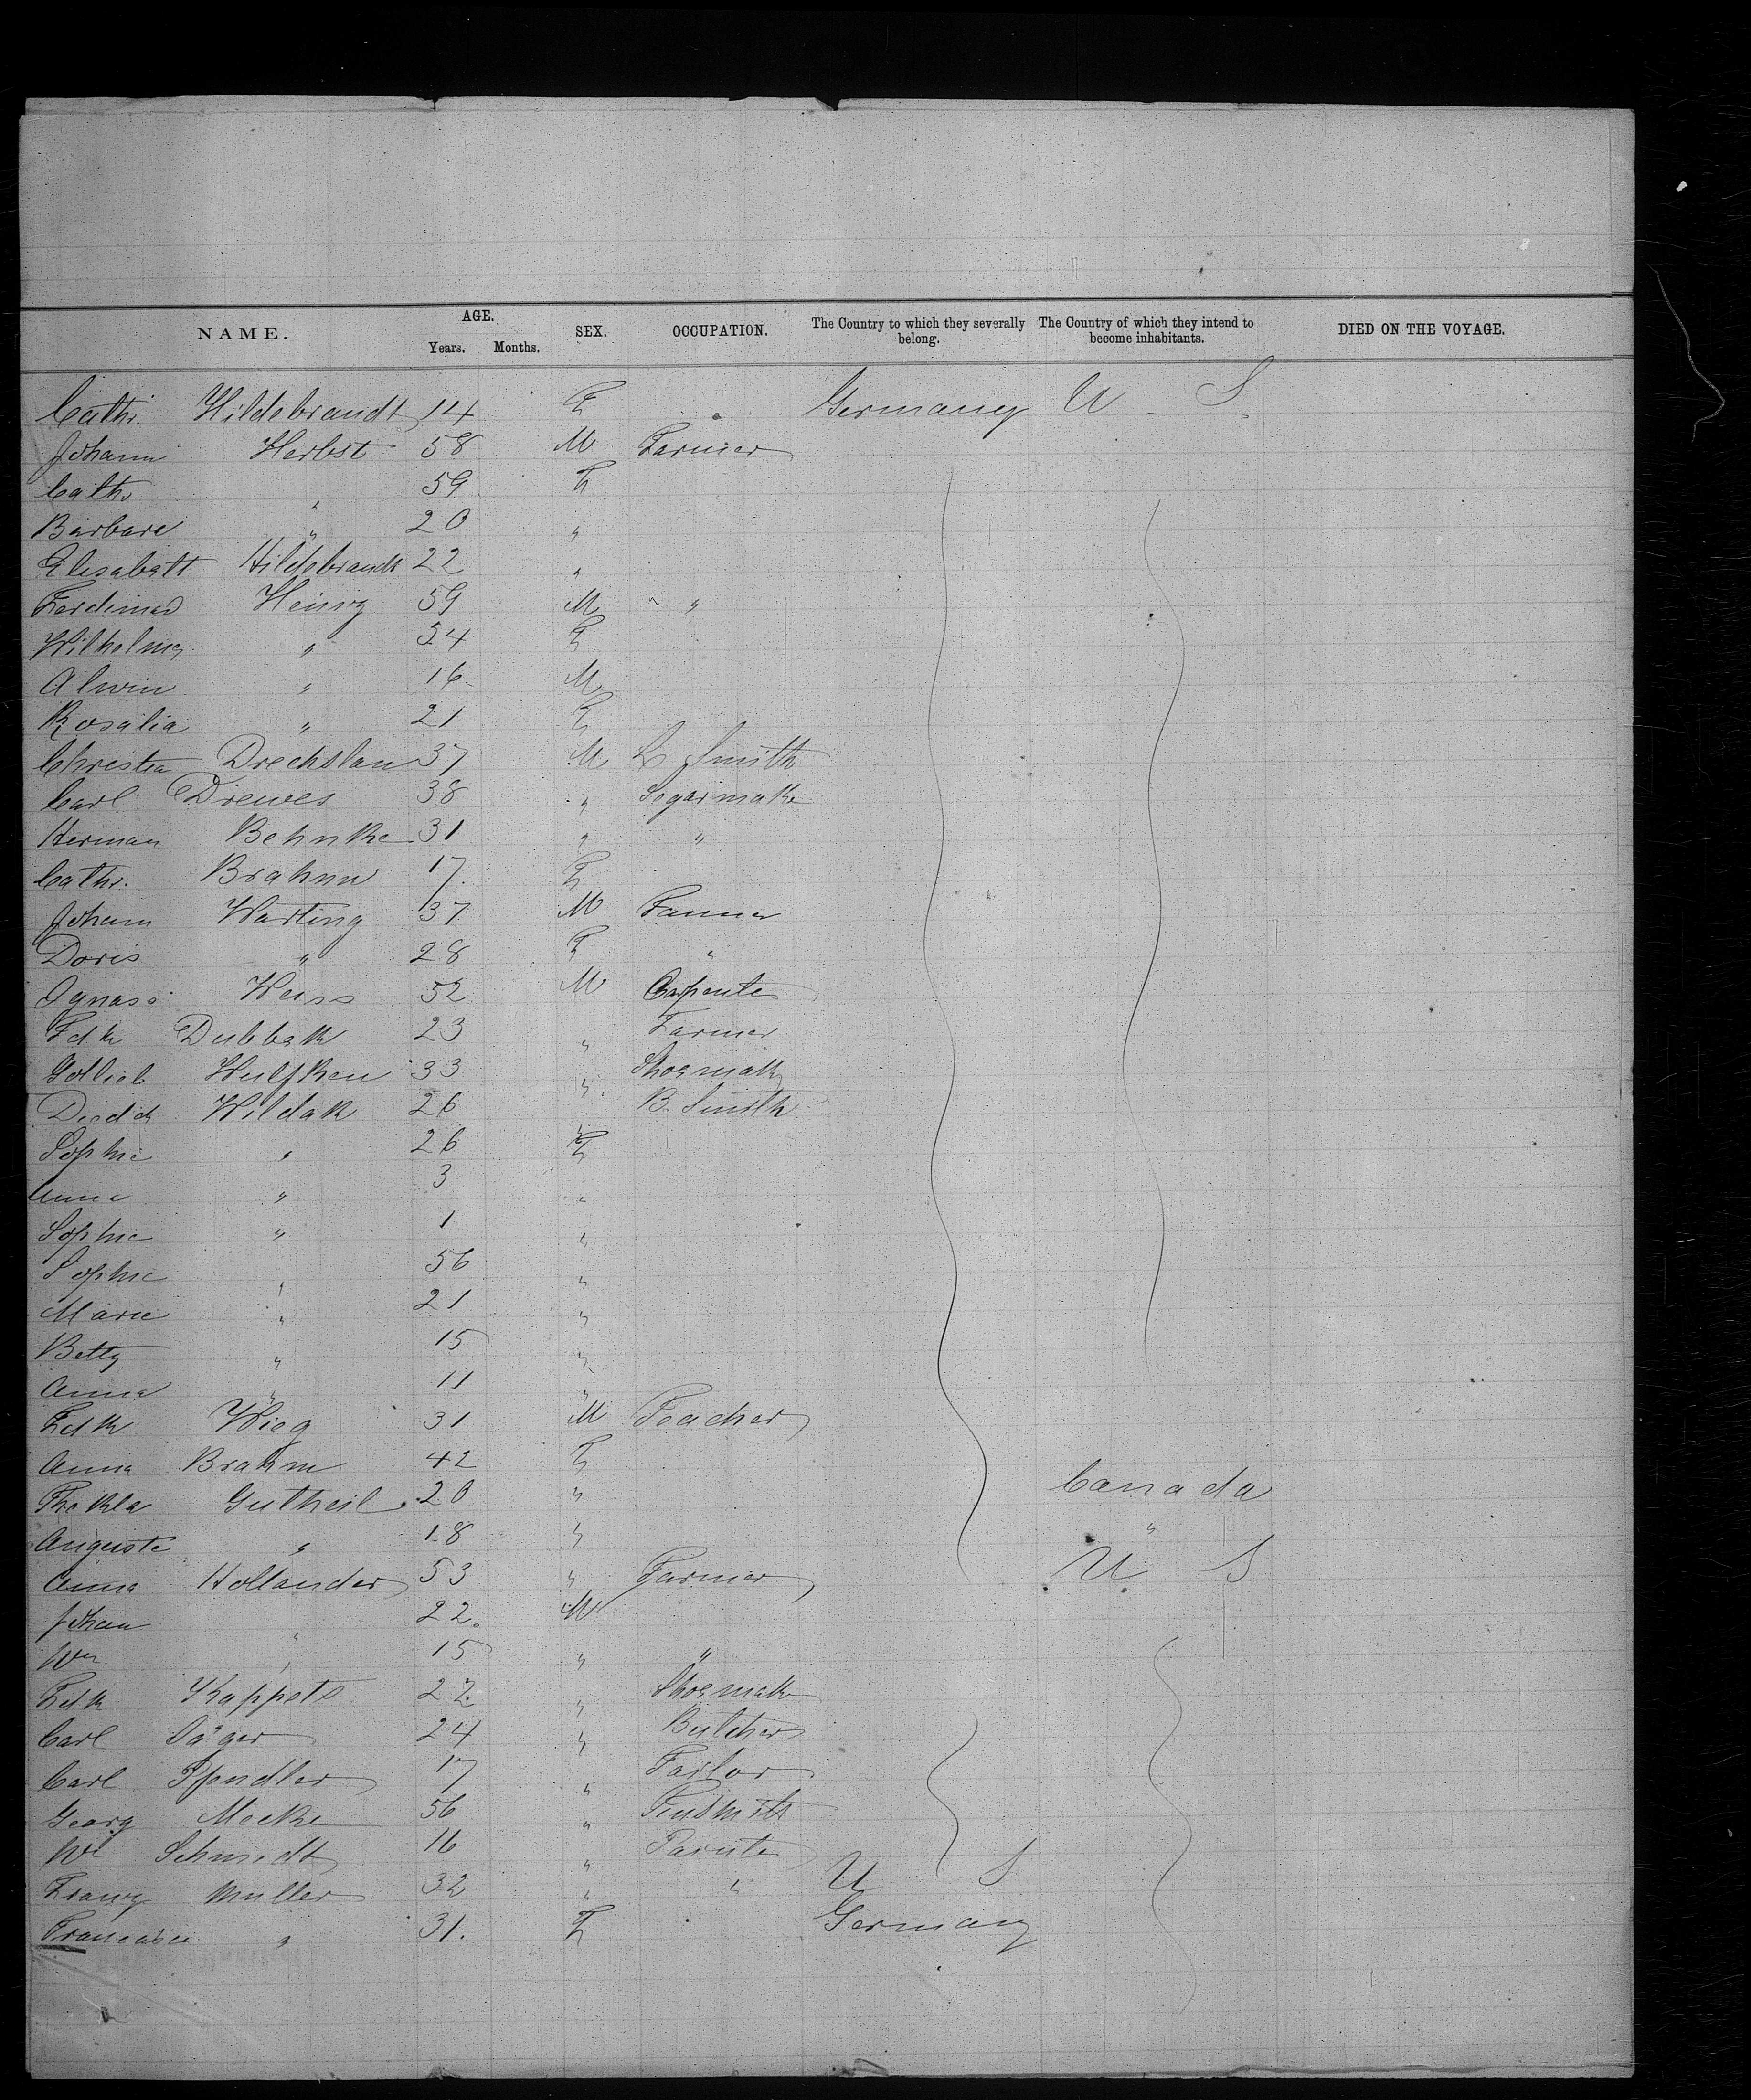 NAME. AGE. Years. Months. SEX. OCCUPATION. The Country to which they severally belong. The Country of which they intend to become inhabitants. DIED ON THE VOYAGE.
Cathr. Hildebrandt 14 F Germany U S
Johann Herbst 58 M Farmer
Cathr " 59 F
Barbara " 20 "
Elisabett Hildebrandt 22 "
Ferdinad 59 M "
Wilhelmg " 54 F
Alwin " 16 M
Rosalia " 21 F
Christia Drechslau 37 M Smith
Carl Drewes 38 " Segarmake
Herman Behnke 31 " "
Cathr. Brahmn 17 F
Johann Warting 37 M Farmer
Doris " 28 F "
Ignass Weiss 52 M Carpente
Fdk Dubbak 23 " Farmer
Gottlieb Hulfken 33 " Shoemak
Diedch Wildak 26 " B. Smith
Sophie " 26 F
Anna " 3 "
Sophie " 1 "
Sophie " 56 "
Marie " 21 "
Betty " 15 "
Anna " 11 "
Fdk Wieg 31 M Teacher
Anna Brahm 42 F
Thekla Gutheil 20 " Canada
Auguste " 18 " "
Anna Hollander 53 " Farmer U S
Johan " 22 M
Wm " 15 " "
Fdk Kappets 22 " Shoemake
Carl Jäger 24 " Butcher
Carl Pfendler 17 " Tailor
Georg Mecke 56 " Tinsmith
Wm Schmidt 16 " Painte
Franz Muller 32 " " U S
Francisca " 31. F Germany